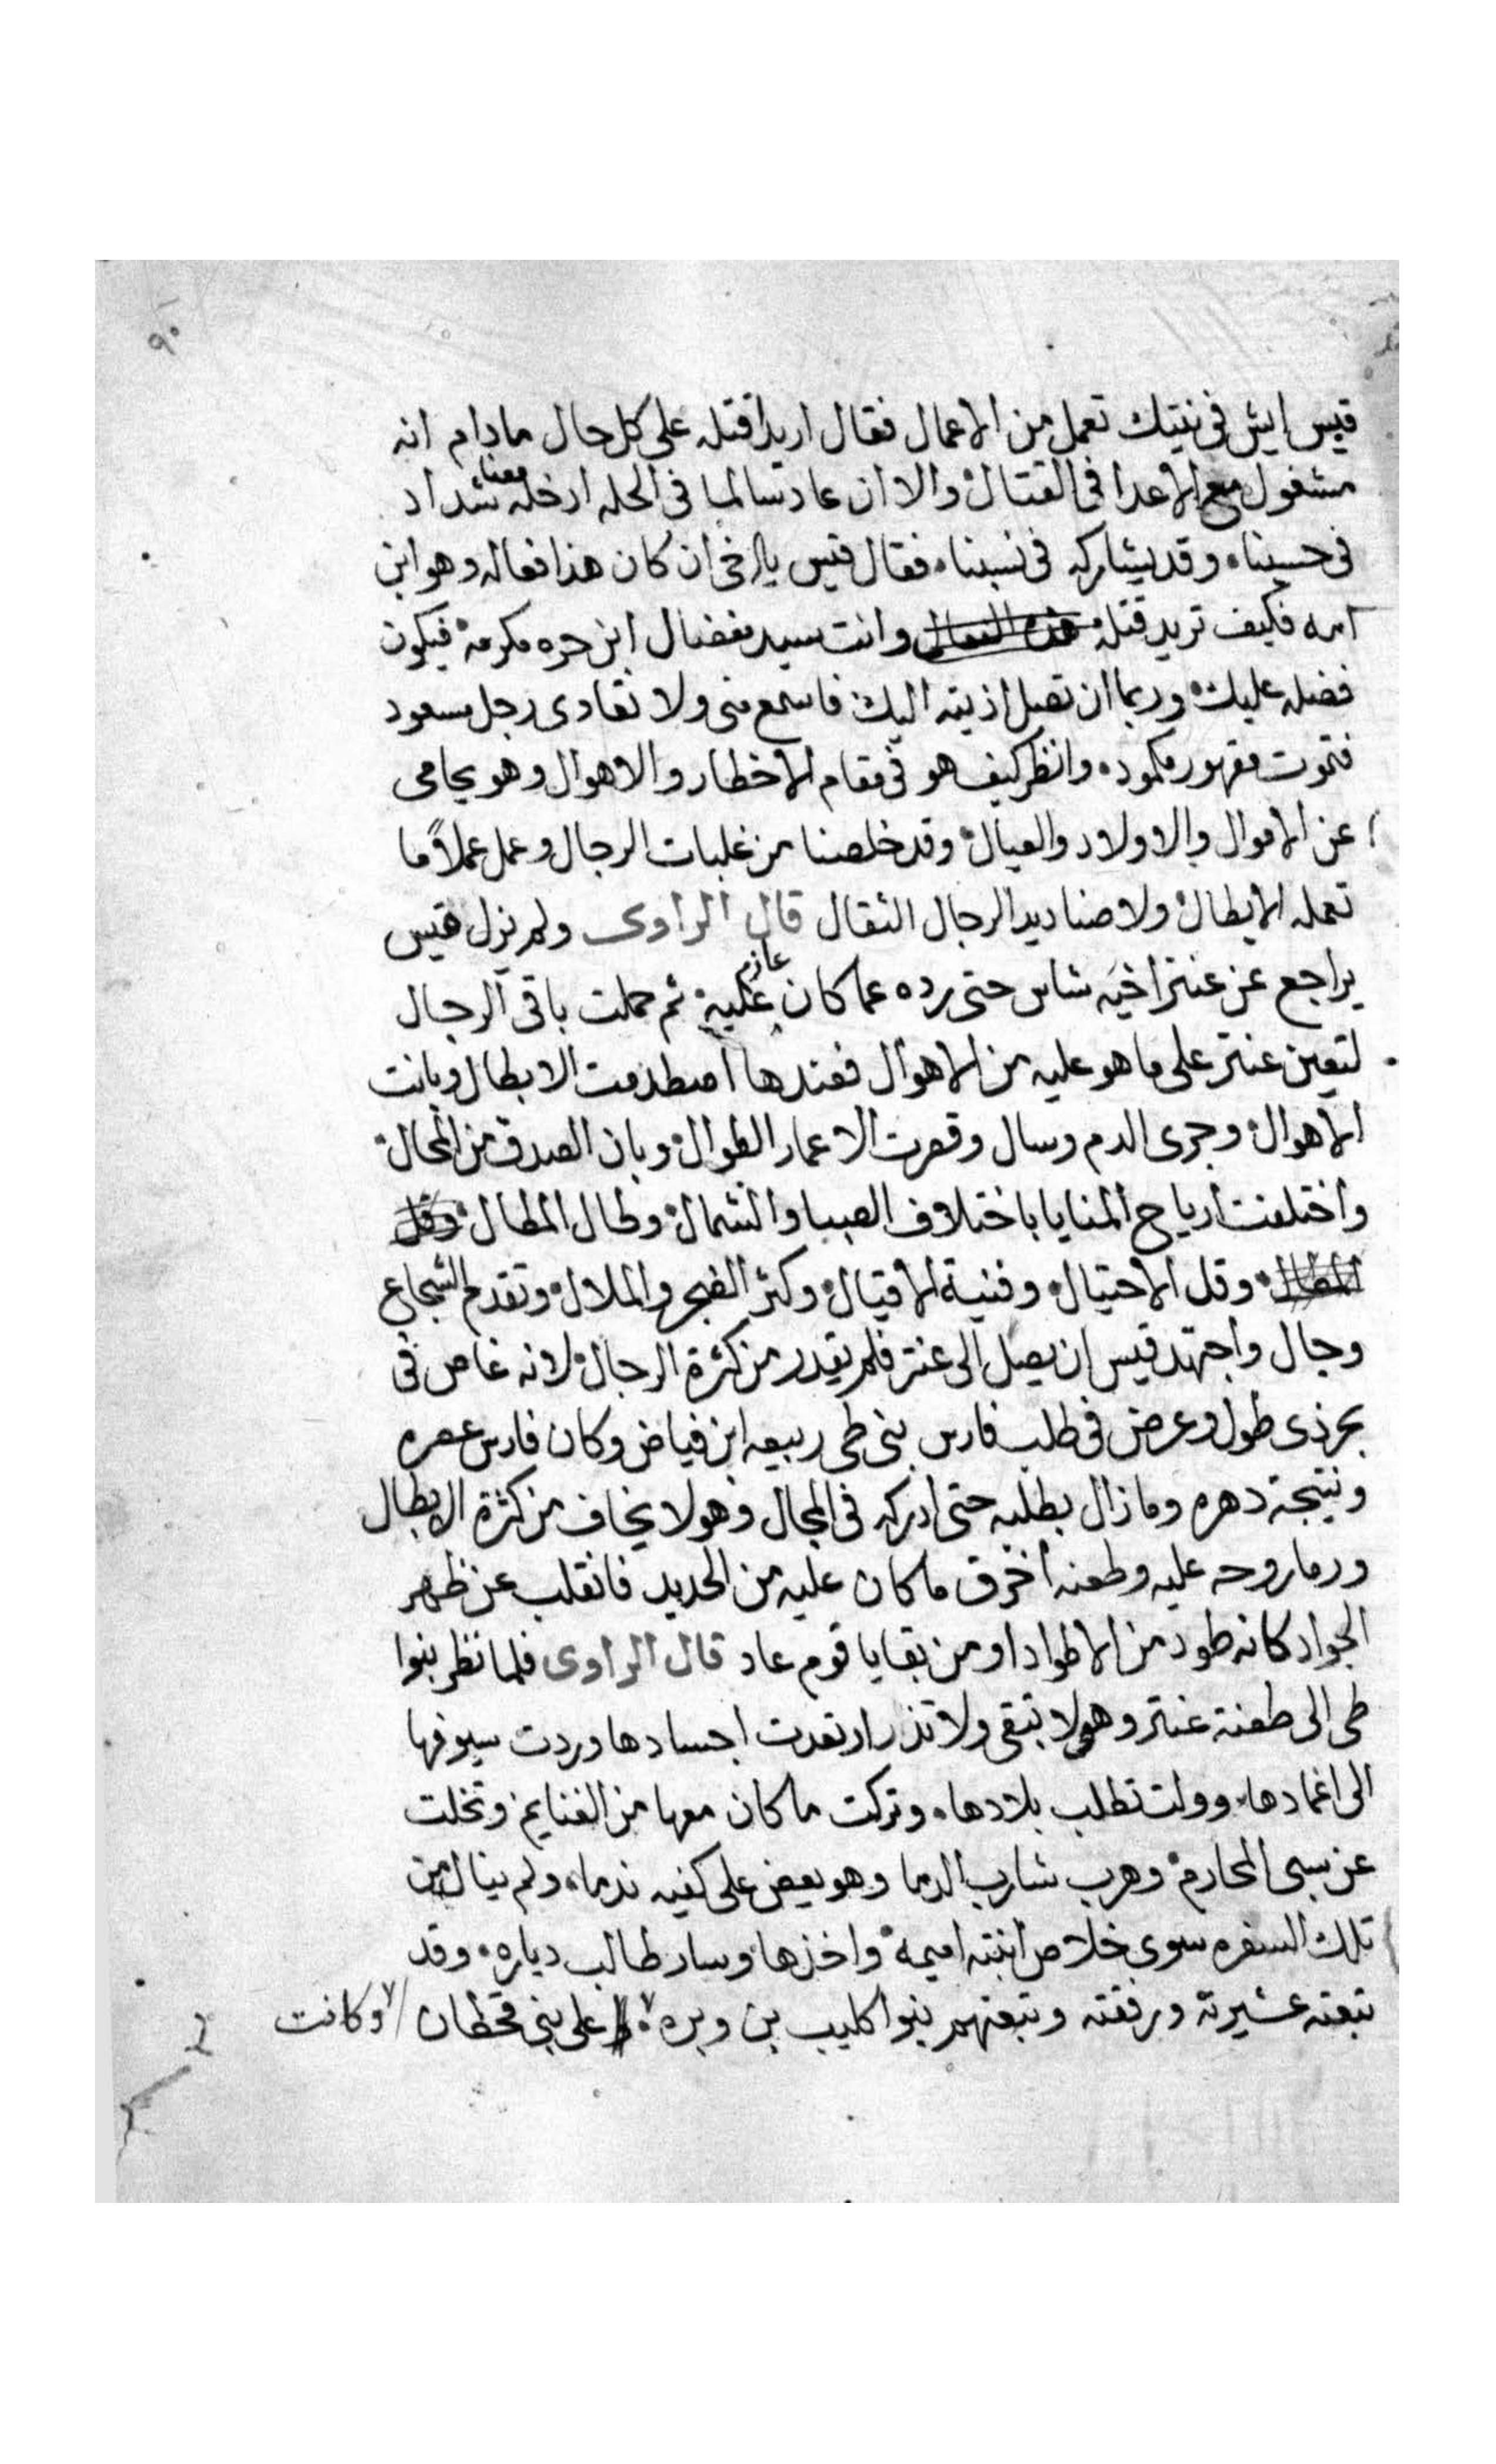 ٩٠
قيس ايش فى نيتك تعمل من الاعمال فقال اريد اقتله على كل حال مادام انه
مشغول مع الاعدا فى القتال والا ان عاد سالما فى الحله ادخله معنا شداد
فى حسبنا وقد يشاركه فى نسبنا فقال قيس يا اخى ان كان هذا فعاله وهو ابن
امه فكيف تريد قتله وانت سيد مفضال ابن حره مكرمة فيكون
فضله عليك وربما ان تصل اذيته اليك فاسمع منى ولا تعادى رجل مسعود
فتموت مقهور مكمود وانظر كيف هو فى مقام الاخطار والاهوال وهو يحامى
عن الاموال والاولاد والعيال وقد خلصنا من غلبات الرجال وعمل عملاً ما
تعمله الابطال ولا صناديد الرجال الثقال قال الراوى ولم يزل قيس
يراجع عن عنتر اخيه شاس حتى رده عما كان عازم عليه ثم حملت باقى الرجال
لتعين عنتر على ما هو عليه من الاهوال فعندها اصطدمت الابطال وبانت
الاهوال وجرى الدم وسال وقصرت الاعمار الطوال وبان الصدق من المحال
واختلفت ارياح المنايا باختلاف الصبا والشمال وطال المطال وقل
المطال وقل الاحتيال وفنية الاقيال وكثر الضجر والملال وتقدم الشجاع
وجال واجتهد قيس ان يصل الى عنتر فلم يقدر من كثرة الرجال لانه غاص فى
بحر ذى طول وعرض فى طلب فارس بنى طى ربيعه ابن فياض وكان فارس عصره
ونتيجة دهره وما زال يطلبه حتى ادركه فى المجال وهو لا يخاف من كثرة الابطال
ورما روحه عليه وطعنه اخرق ما كان عليه من الحديد فانقلب عن ظهر
الجواد كانه طود من الاطواد او من بقايا قوم عاد قال الراوى فلما نظر بنوا
طى الى طعنة عنتر وهى لا تبقى ولا تذر ارتعدت اجسادها وردت سيوفها
الى اغمادها وولت تطلب بلادها وتركت ما كان معها من الغنايم وتخلت
عن سبى المحارم وهرب شارب الدما وهو يعض على كفيه ندما ولم ينال من
تلك السفره سوى خلاص ابنته اميمة واخذها وسار طالب دياره وقد
تبعته عشيرته ورفقته وتبعتهم بنوا كليب بن وبره على بنى قحطان وكانت